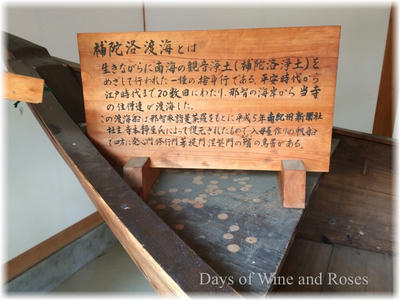 補陀洛渡海とは
生きながらに南海の観音浄土(補陀洛浄土)を
めざして行われた一種の捨身行である。平安時代から
江戸時代まで20数回にわたり、那智の海岸から当寺
の住僧達が渡海した。
この渡海船は那智参詣曼荼羅をもとに平成5年南紀田新聞社
社主寺本静生氏によって復元されたもので入母屋作りの帆船
で四方に発心門修行門菩提門涅槃門の鳥居がある。
Days of Wine and Roses